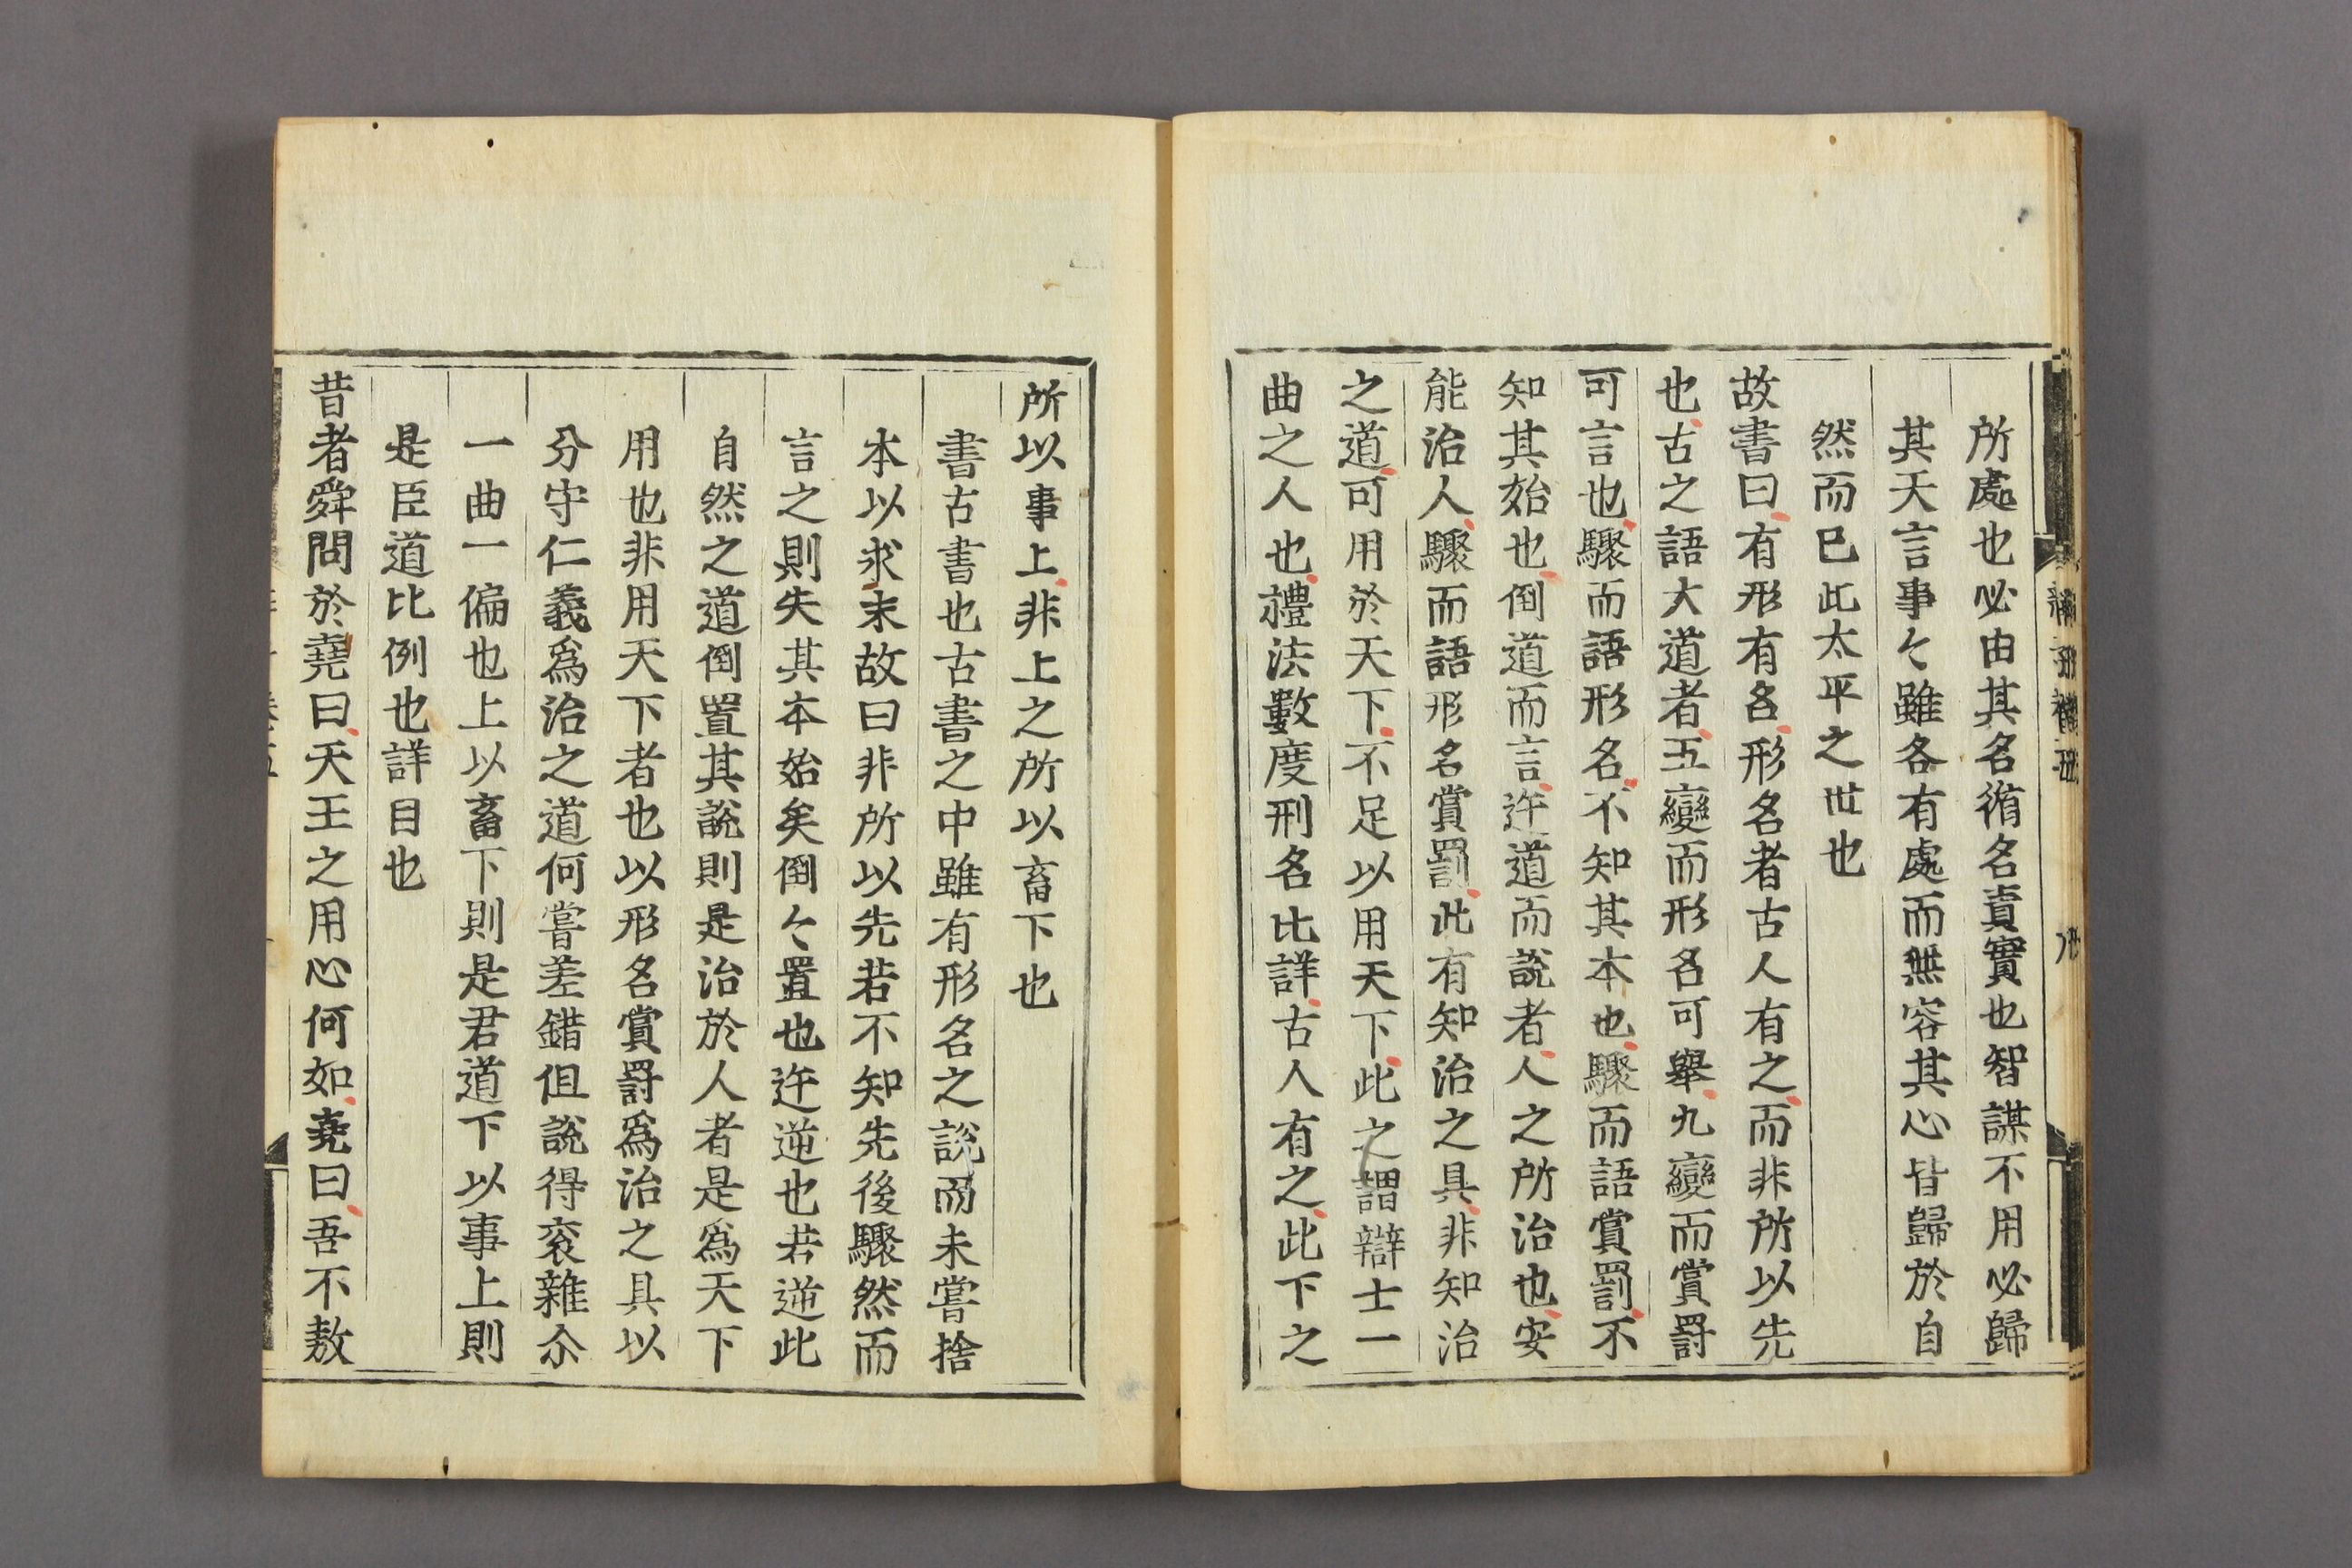 所處也必由其名循名責實也智謀不用必歸
其天言事々雖各有處而無容其心皆歸於自
然而已此太平之世也
故書曰有形有名形名者古人有之而非所以先
也古之語大道者五變而形名可舉九變而賞罸
可言也驟而語形名不知其本也驟而語賞罰不
知其始也倒道而言迕道而說者人之所治也安
能治人驟而語形名賞罰此有知治之具非知治
之道可用於天下不足以用天下此之謂辯士一
曲之人也禮法數度刑名比詳古人有之此下之
所以事上非上之所以畜下也
書古書也古書之中雖有形名之說而未嘗捨
本以求末故曰非所以先若不知先後驟然而
言之則失其本始矣倒々置也迕逆也若逆此
自然之道倒置其說則是治於人者是爲天下
用也非用天下者也以形名賞罸爲治之具以
分守仁義爲治之道何嘗差錯但說得衮雜尒
一曲一偏也上以畜下則是君道下以事上則
是臣道比例也詳目也
昔者舜問於堯曰天王之用心何如堯曰吾不敖